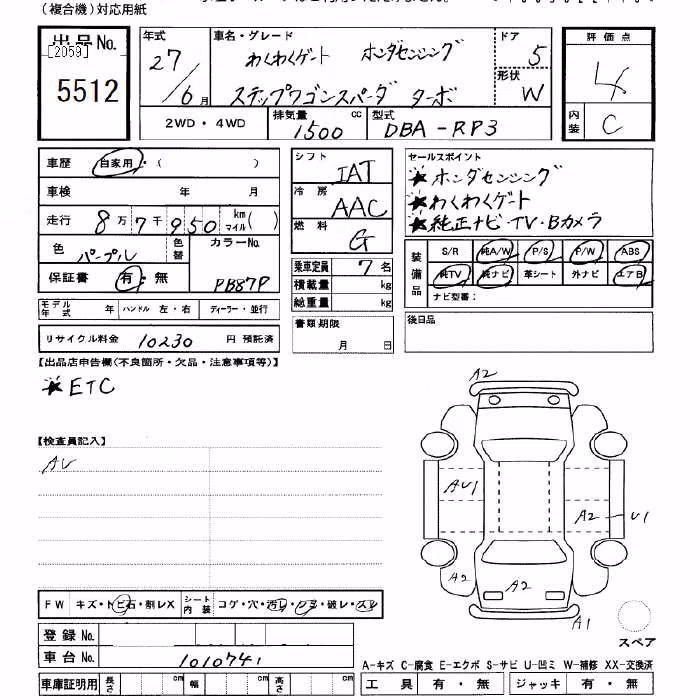 (複合機)対応用紙
出品No.
[2059]
5512
年式
27/6月
車名・グレード
わくわくゲート ホンダセンシング
ステップワゴンスパーダ ターボ
ドア
5
形状
W
評価点
4
内装
C
2WD・4WD
排気量
1500cc
型式
DBA-RP3
車歴
自家用・( )
車検 年 月
走行 8万7千950 km マイル( )
色
パープル
色替
カラーNo.
PB87P
保証書 有・無
モデル年式 年 ハンドル 左・右 ディーラー・並行
リサイクル料金 10230 円 預託済
シフト
IAT
冷房
AAC
燃料
G
乗車定員 7名
積載量 kg
総重量 kg
書類期限
月 日
セールスポイント
★ホンダセンシング
★わくわくゲート
★純正ナビ・TV・Bカメラ
装備品
S/R 純A/W P/S P/W ABS
純TV 純ナビ 革シート 外ナビ エアB
ナビ型番:
後日品
【出品店申告欄(不良箇所・欠品・注意事項等)】
★ETC
【検査員記入】
AU
A2
AU1
A2
U1
A2
A2
A1
スペア
FW キズ・トビ石・割レX
シート内装 コゲ・穴・汚レ・シミ・破レ・スレ
登録No.
車台No. 1010741
車庫証明用 長さ cm 幅 cm 高さ cm
A-キズ C-腐食 E-エクボ S-サビ U-凹ミ W-補修 XX-交換済
工具 有・無 ジャッキ 有・無